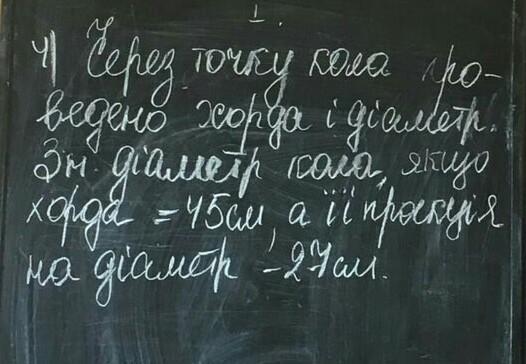 I.
4) Через точку кола про-
ведено хорда і діаметр.
Зн. діаметр кола, якщо
хорда = 45см, а її проекція
на діаметр – 27см.